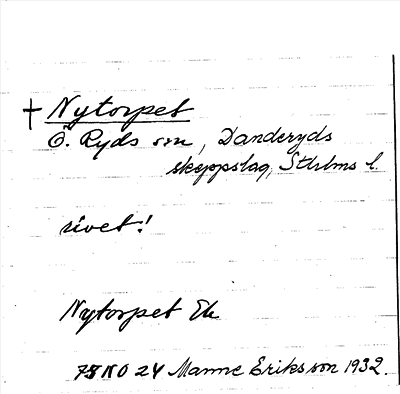 † Nytorpet
Ö. Ryds sn, Danderyds
skeppslag, Sthlms l.
rivet!
Nytorpet Ek
75 NO 24 Manne Eriksson 1932.